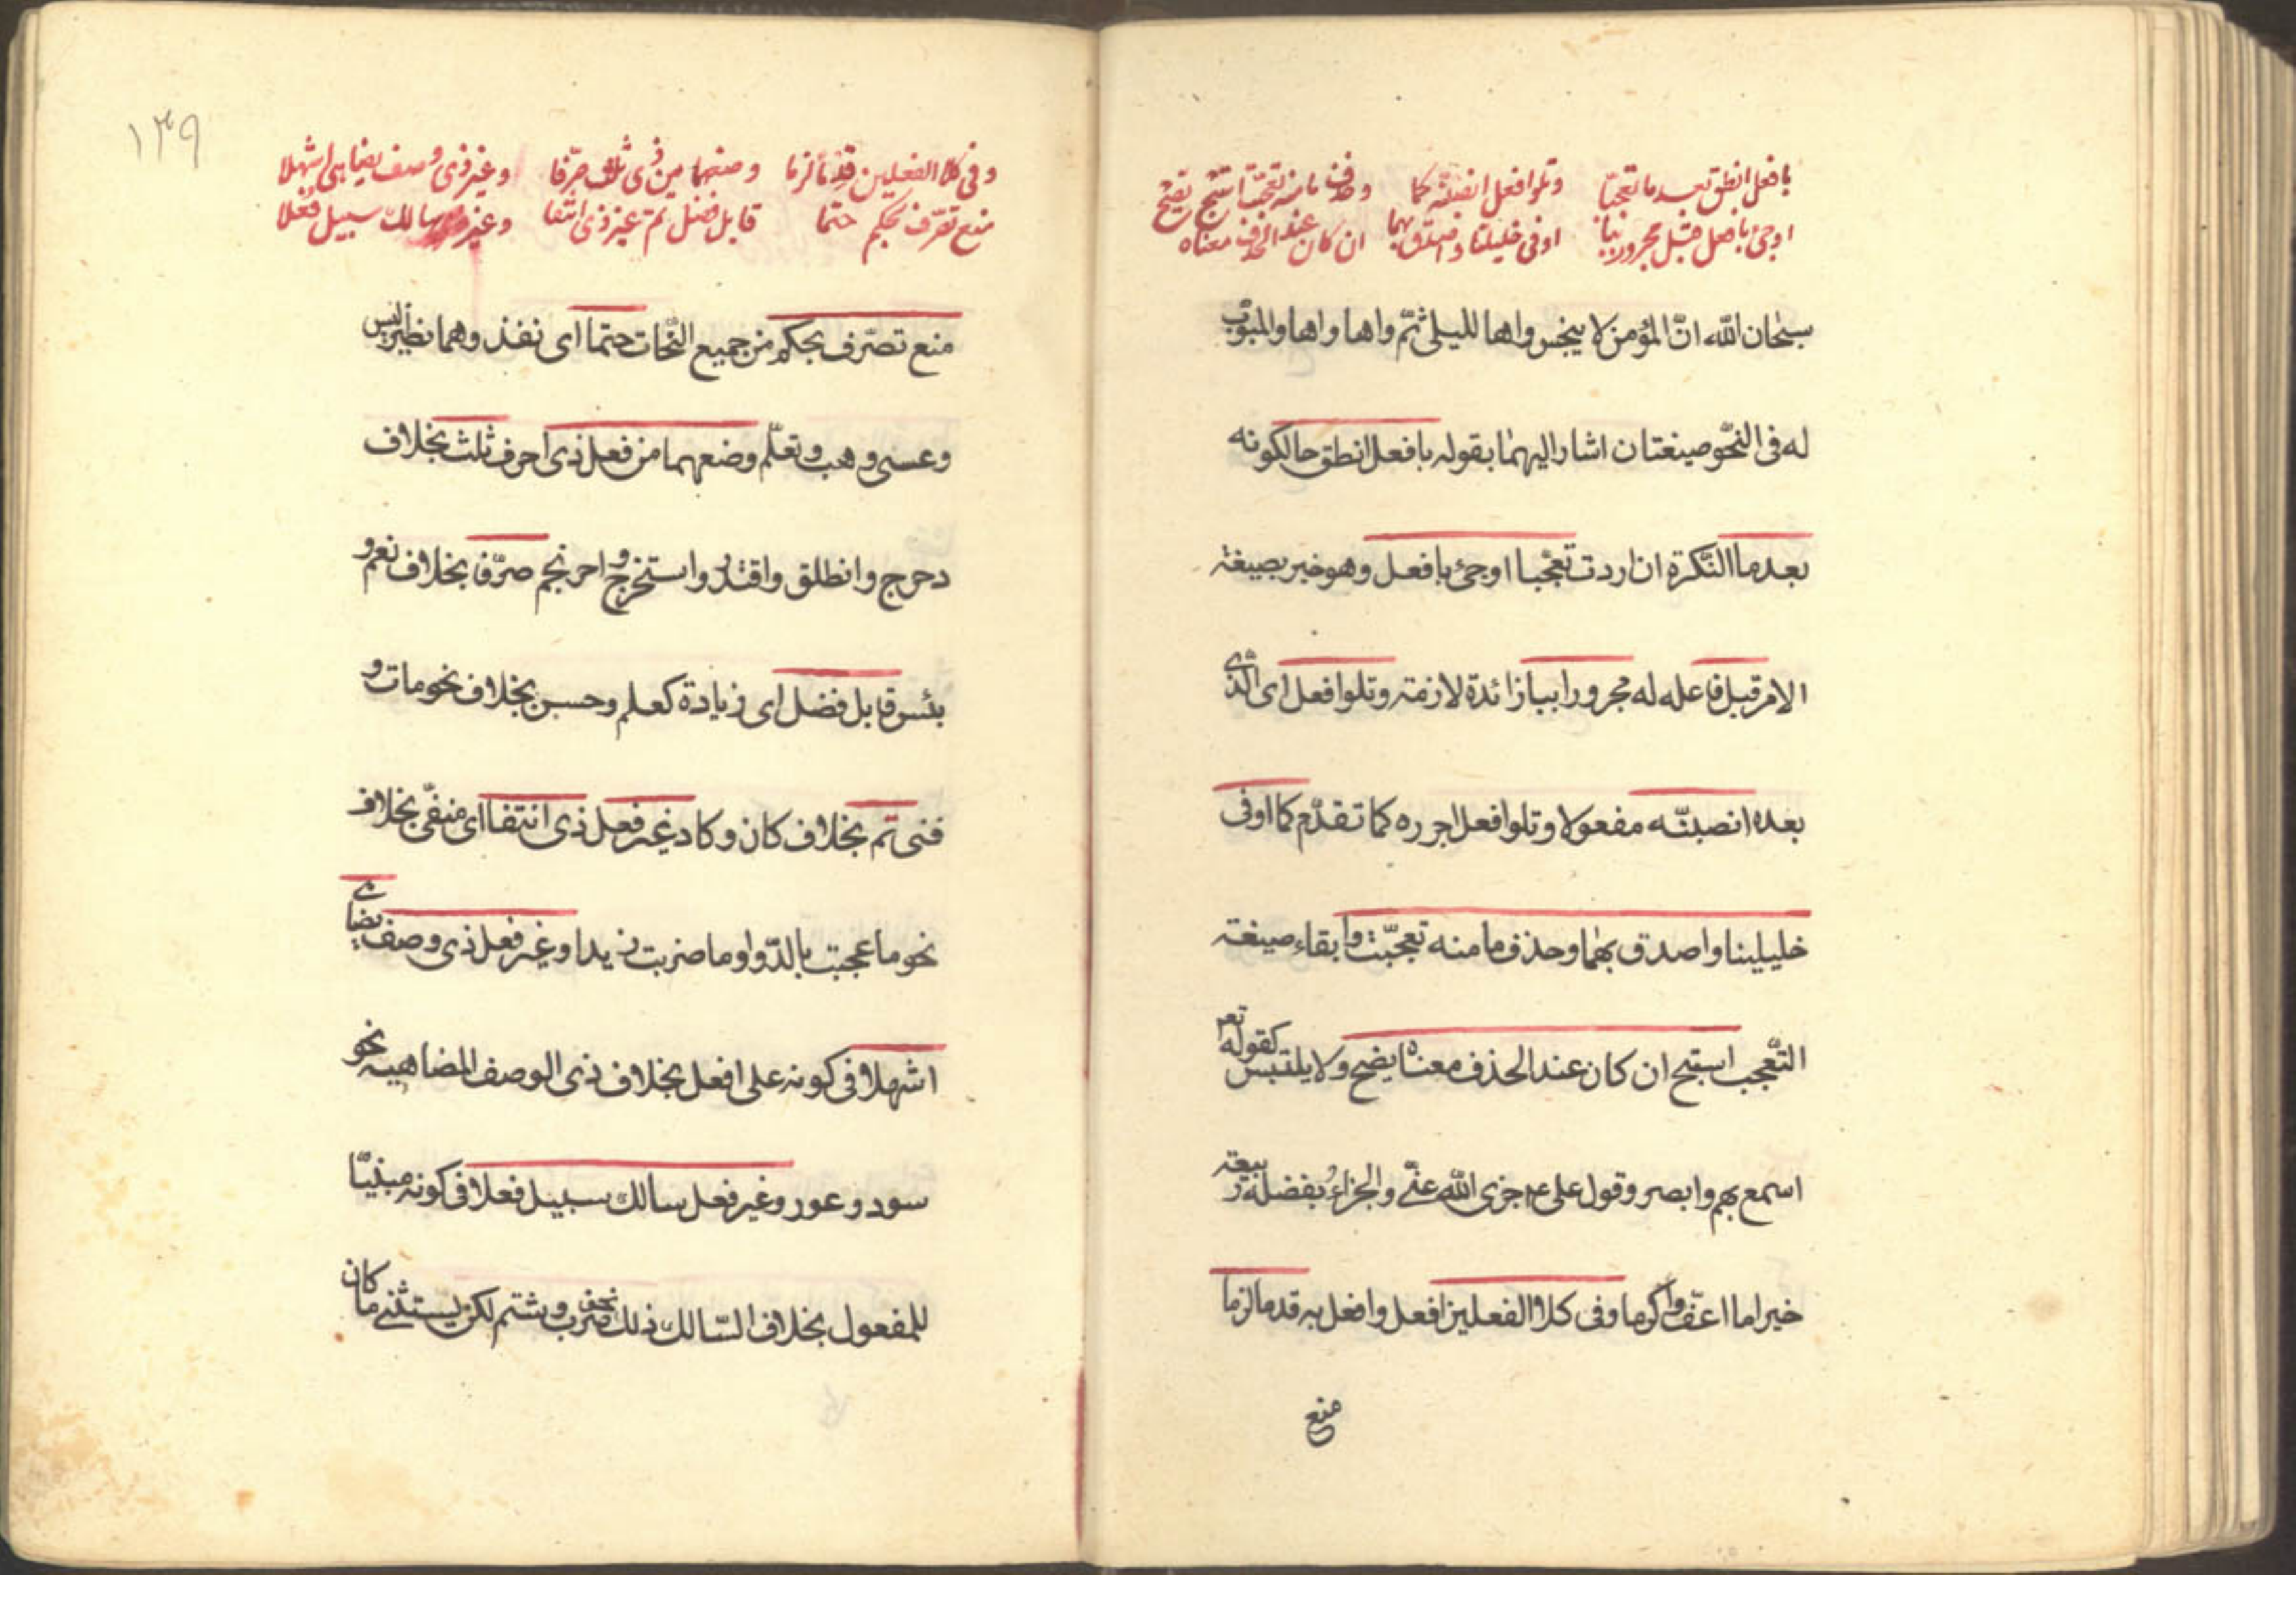 بافعل انطق بعد ما تعجبّا وتلو افعل انصبنّه كما وحذف ما منه تعجّبت استبح
اوجئ بافعل قبل مجرور ببا اوفى خليلينا واصدق بهما ان كان عند الحذف معناه يضح
سبحان الله انّ المؤمن لا ينجس واها لليلى ثمّ واها واها والمبوّب
له فى النّحو صيغتان اشار اليهما بقوله بافعل انطق حالكونه
بعد ما النّكرة ان اردت تعجّبا اوجئ بافعل وهو خبر بصيغة
الامر قبل فاعله له مجرور ببا زائدة لازمة وتلو افعل اى الّذى
بعده انصبنّه مفعولا وتلو افعل اجرره كما تقدّم كما اوفى
خليلينا واصدق بهما وحذف ما منه تعجّبت وابقاء صيغة
التّعجب استبح ان كان عند الحذف معناه يضح ولا يلتبس كقوله تعم
اسمع بهم وابصر وقول علىّ ع جزى الله عنّى والجزاء بفضله ربيعة
خيرا ما اعفّ واكرما وفى كلا الفعلين افعل وافعل به قدما لزما
منع
١٣٩
وفى كلا الفعلين قدما لزما وصغهما من ذى ثلث صرّفا وغير ذى وصف يضاهى اشهلا
منع تصرّف بحكم حتما قابل فضل تمّ غير ذى انتفا وغير سالك سبيل فعلا
منع تصرّف بحكم من جميع النّحات حتما اى نفذ وهما نظير ليس
وعسى وهب وتعلّم وضعهما من فعل ذى احرف ثلث بخلاف
دحرج وانطلق واقتدر واستخرج واحرنجم صرّفا بخلاف نعم و
بئس قابل فضل اى زيادة كعلم وحسن بخلاف نحو مات و
فنى تمّ بخلاف كان وكاد غير فعل ذى انتفا اى منفّى بخلاف
نحو ما عجبت بالدّواو ما ضربت زيدا وغير فعل ذى وصف يضاهى
اشهلا فى كونه على افعل بخلاف ذى الوصف المضاهيه نحو
سود وعور وغير فعل سالك سبيل فعلا فى كونه مبنيّا
للمفعول بخلاف السّالك ذلك نحو ضرب وشتم لكن يستثنى ما كان